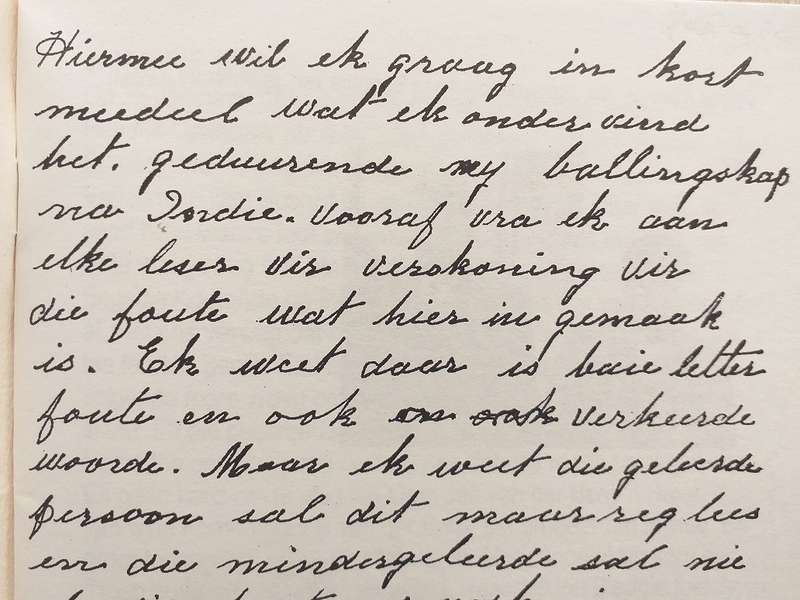 Hiermee wil ek graag in kort
meedeel wat ek ondervind
het. geduurende my ballingskap
na Indie. Vooraf vra ek aan
elke leser vir verskoning vir
die foute wat hier in gemaak
is. Ek weet daar is baie letter
foute en ook en ook verkeerde
woorde. Maar ek weet die geleerde
persoon sal dit maar reg lees
en die mindergeleerde sal nie